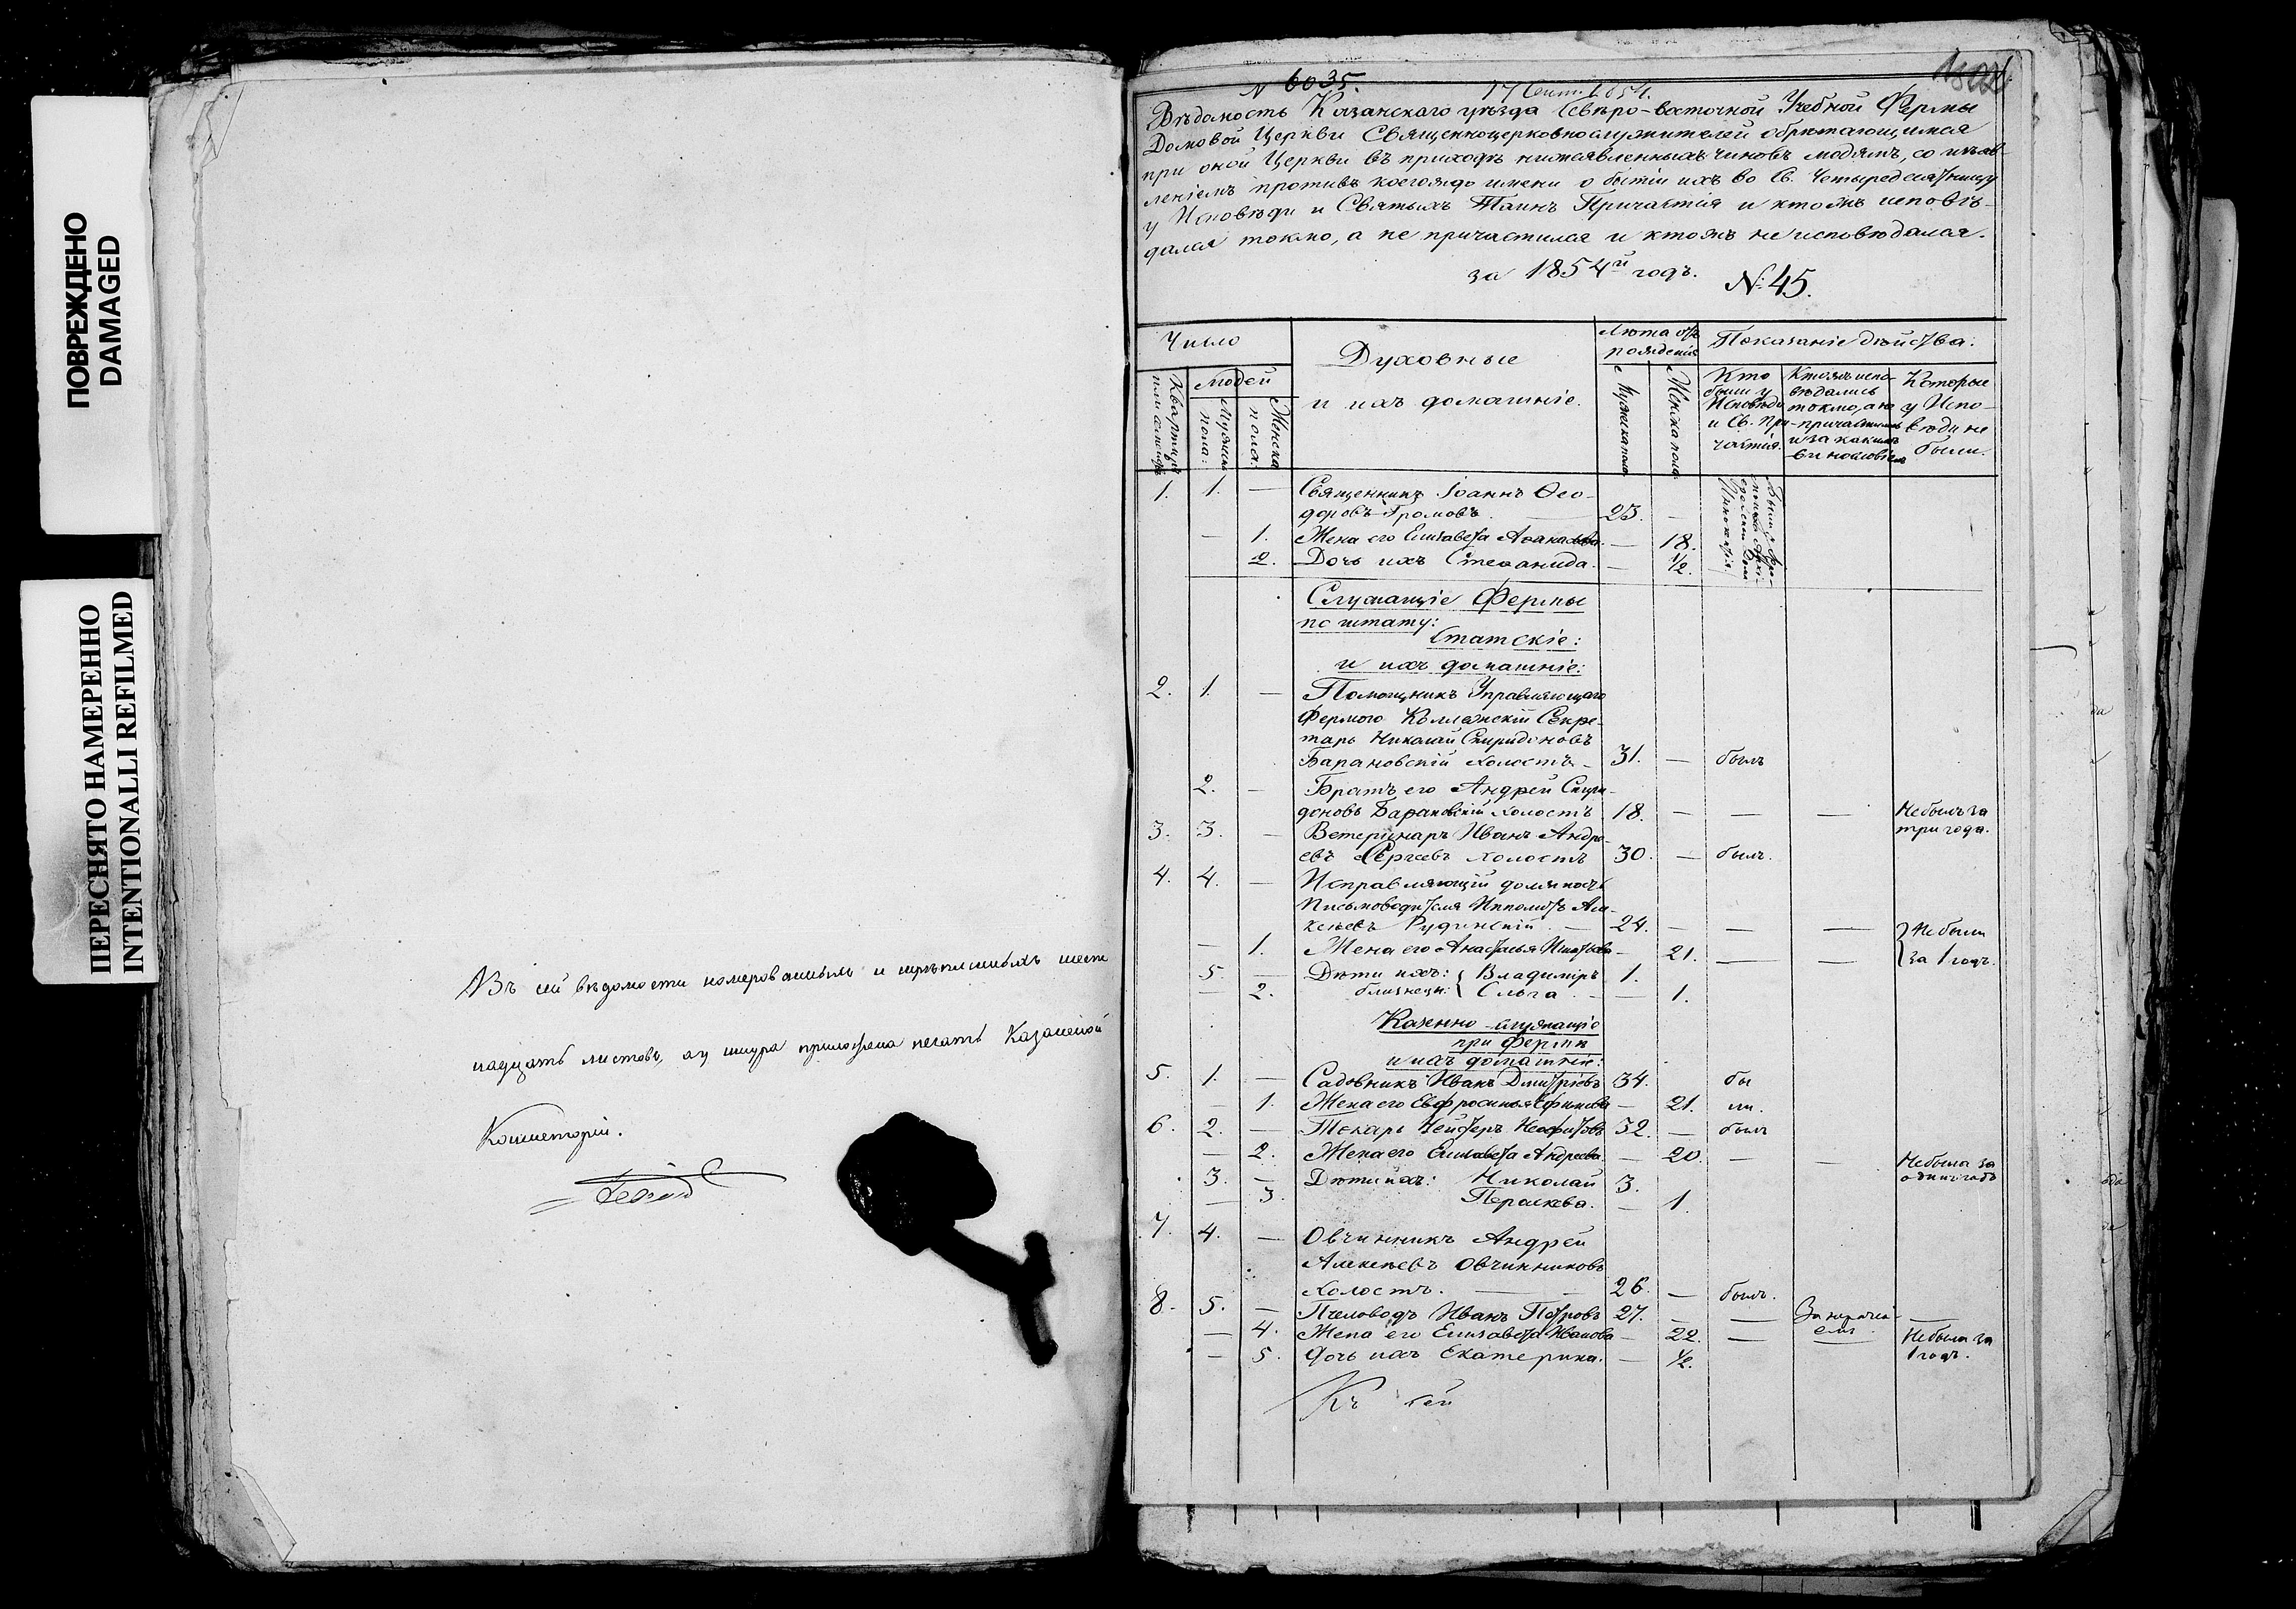 ПОВРЕЖДЕНО
DAMAGED
ПЕРЕСНЯТО НАМЕРЕННО
INTENTIONALLI REFILMED
Въ сей вѣдомости номерованныхъ и
надцать листовъ, а у шнура приложена печать Казанской
Консисторіи.
№ 6035.
17 1854.
Вѣдомость Казанскаго уѣзда Сѣверо-восточной Учебной Фермы
Домовой Церкви Священноцерковнослужителей обрѣтающимся
при оной Церкви въ приходѣ нижеявленныхъ чиновъ людямъ, со изъяв-
леніемъ противъ коегождо имени о бытіи ихъ во Св. Четыредесятницу
у Исповѣди и Святыхъ Таинъ Причастія и ктожъ исповѣ-
дался токмо, а не причастился и ктожъ не исповѣдался.
за 1854й годъ. №45.
Число
Людей
Мужеска пола:
Женска пола:
Духовные
и ихъ домашніе.
Лѣта отъ рожденія
Мужеска пола
Женска пола
Показаніе дѣйства:
Кто были у Исповѣди и Св. Причастія.
Ктожъ исповѣдались токмо, а не причастились и за какимъ виномъ
Которые у Исповѣди не были.
1. 1. — Священникъ Іоаннъ Ѳео-
доровъ Громовъ 25. —
— 1. Жена его Елизавета — 18.
2. Дочь ихъ Стефанида. — 1/2.
Служащіе Фермы
по штату:
Статскіе:
и ихъ домашніе:
2. 1. — Помощникъ Управляющаго
Фермою Коллежскій Секре-
тарь Николай Спиридоновъ
Барановскій холостъ — 31. — былъ
2. — Братъ его Андрей Спири-
доновъ Барановскій холостъ 18. — — — Не былъ за три года.
3. 3. — Ветеринаръ Иванъ Андре-
евъ Сергеевъ холостъ 30. — былъ.
4. 4. — Исправляющій должность
Письмоводителя Ипполитъ Але-
ксѣевъ Рудинскій — 24. — — — Не были
— 1. Жена его Анастасья — 21. — — за 1 годъ.
5. — Дѣти ихъ: Владиміръ 1.
— 2. близнецы: Ольга — — 1.
Казенно-служащіе
при Фермѣ
и ихъ домашніе:
5. 1. — Садовникъ Иванъ Дмитріевъ 34. бы
— 1. Жена его Евфросинья Ефимова — 21. ли.
6. 2. — Токарь 32. — былъ
— 2. Жена его Елизавета Андреева — 20. — — Не была за одинъ годъ
3. — Дѣти ихъ: Николай 3.
— 3. Пераскева. — 1.
7. 4. — Овчинникъ Андрей
Алексѣевъ Овчинниковъ
холостъ. — 26. — былъ.
8. 5. — Пчеловодъ Иванъ Петровъ 27. — —
— 4. Жена его Елизавета Иванова — 22. — — Не была за 1 годъ.
— 5. Дочь ихъ Екатерина. — 1/2.
Къ сей